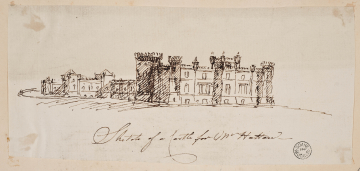 Sketch of a Castle for Mr Hatton